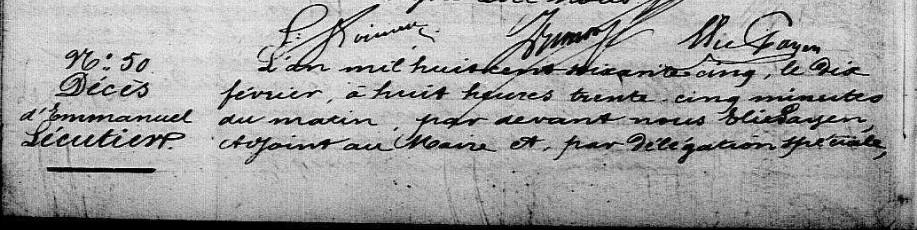 Elie Payen
N.° 50
Décès
d'Emmanuel
Lécutier.
L'an mil huit cent soixante cinq, le dix
février, à huit heures trente cinq minutes
du matin, par devant nous Elie Payen,
Adjoint au Maire et, par délégation spéciale,